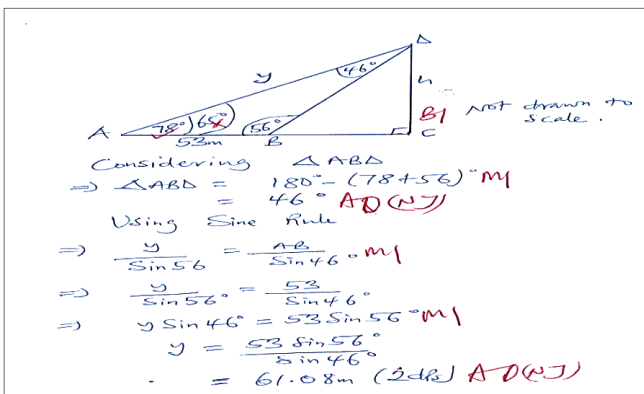 D
y
46°
h
A 78° 65° 56° B C
53m
B1 Not drawn to
scale.
Considering △ABD
⇒ △ABD = 180° - (78+56)° M1
= 46° A0 (NJ)
Using Sine Rule
⇒ y/Sin56 = AB/Sin46° M1
⇒ y/Sin56° = 53/Sin46°
⇒ y Sin46° = 53 Sin56° M1
y = 53 Sin56°/Sin46°
= 61.08m (2dps) A0 (NJ)